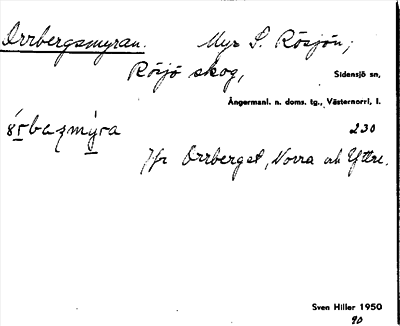 Orrbergsmyran. Myr S. Rösjön,
Rösjö skog, Sidensjö sn,
Ångermanl. n. doms. tg., Västernorrl, l.
230
Jfr Orrberget, Norra och Yttre.
Sven Hiller 1950
90